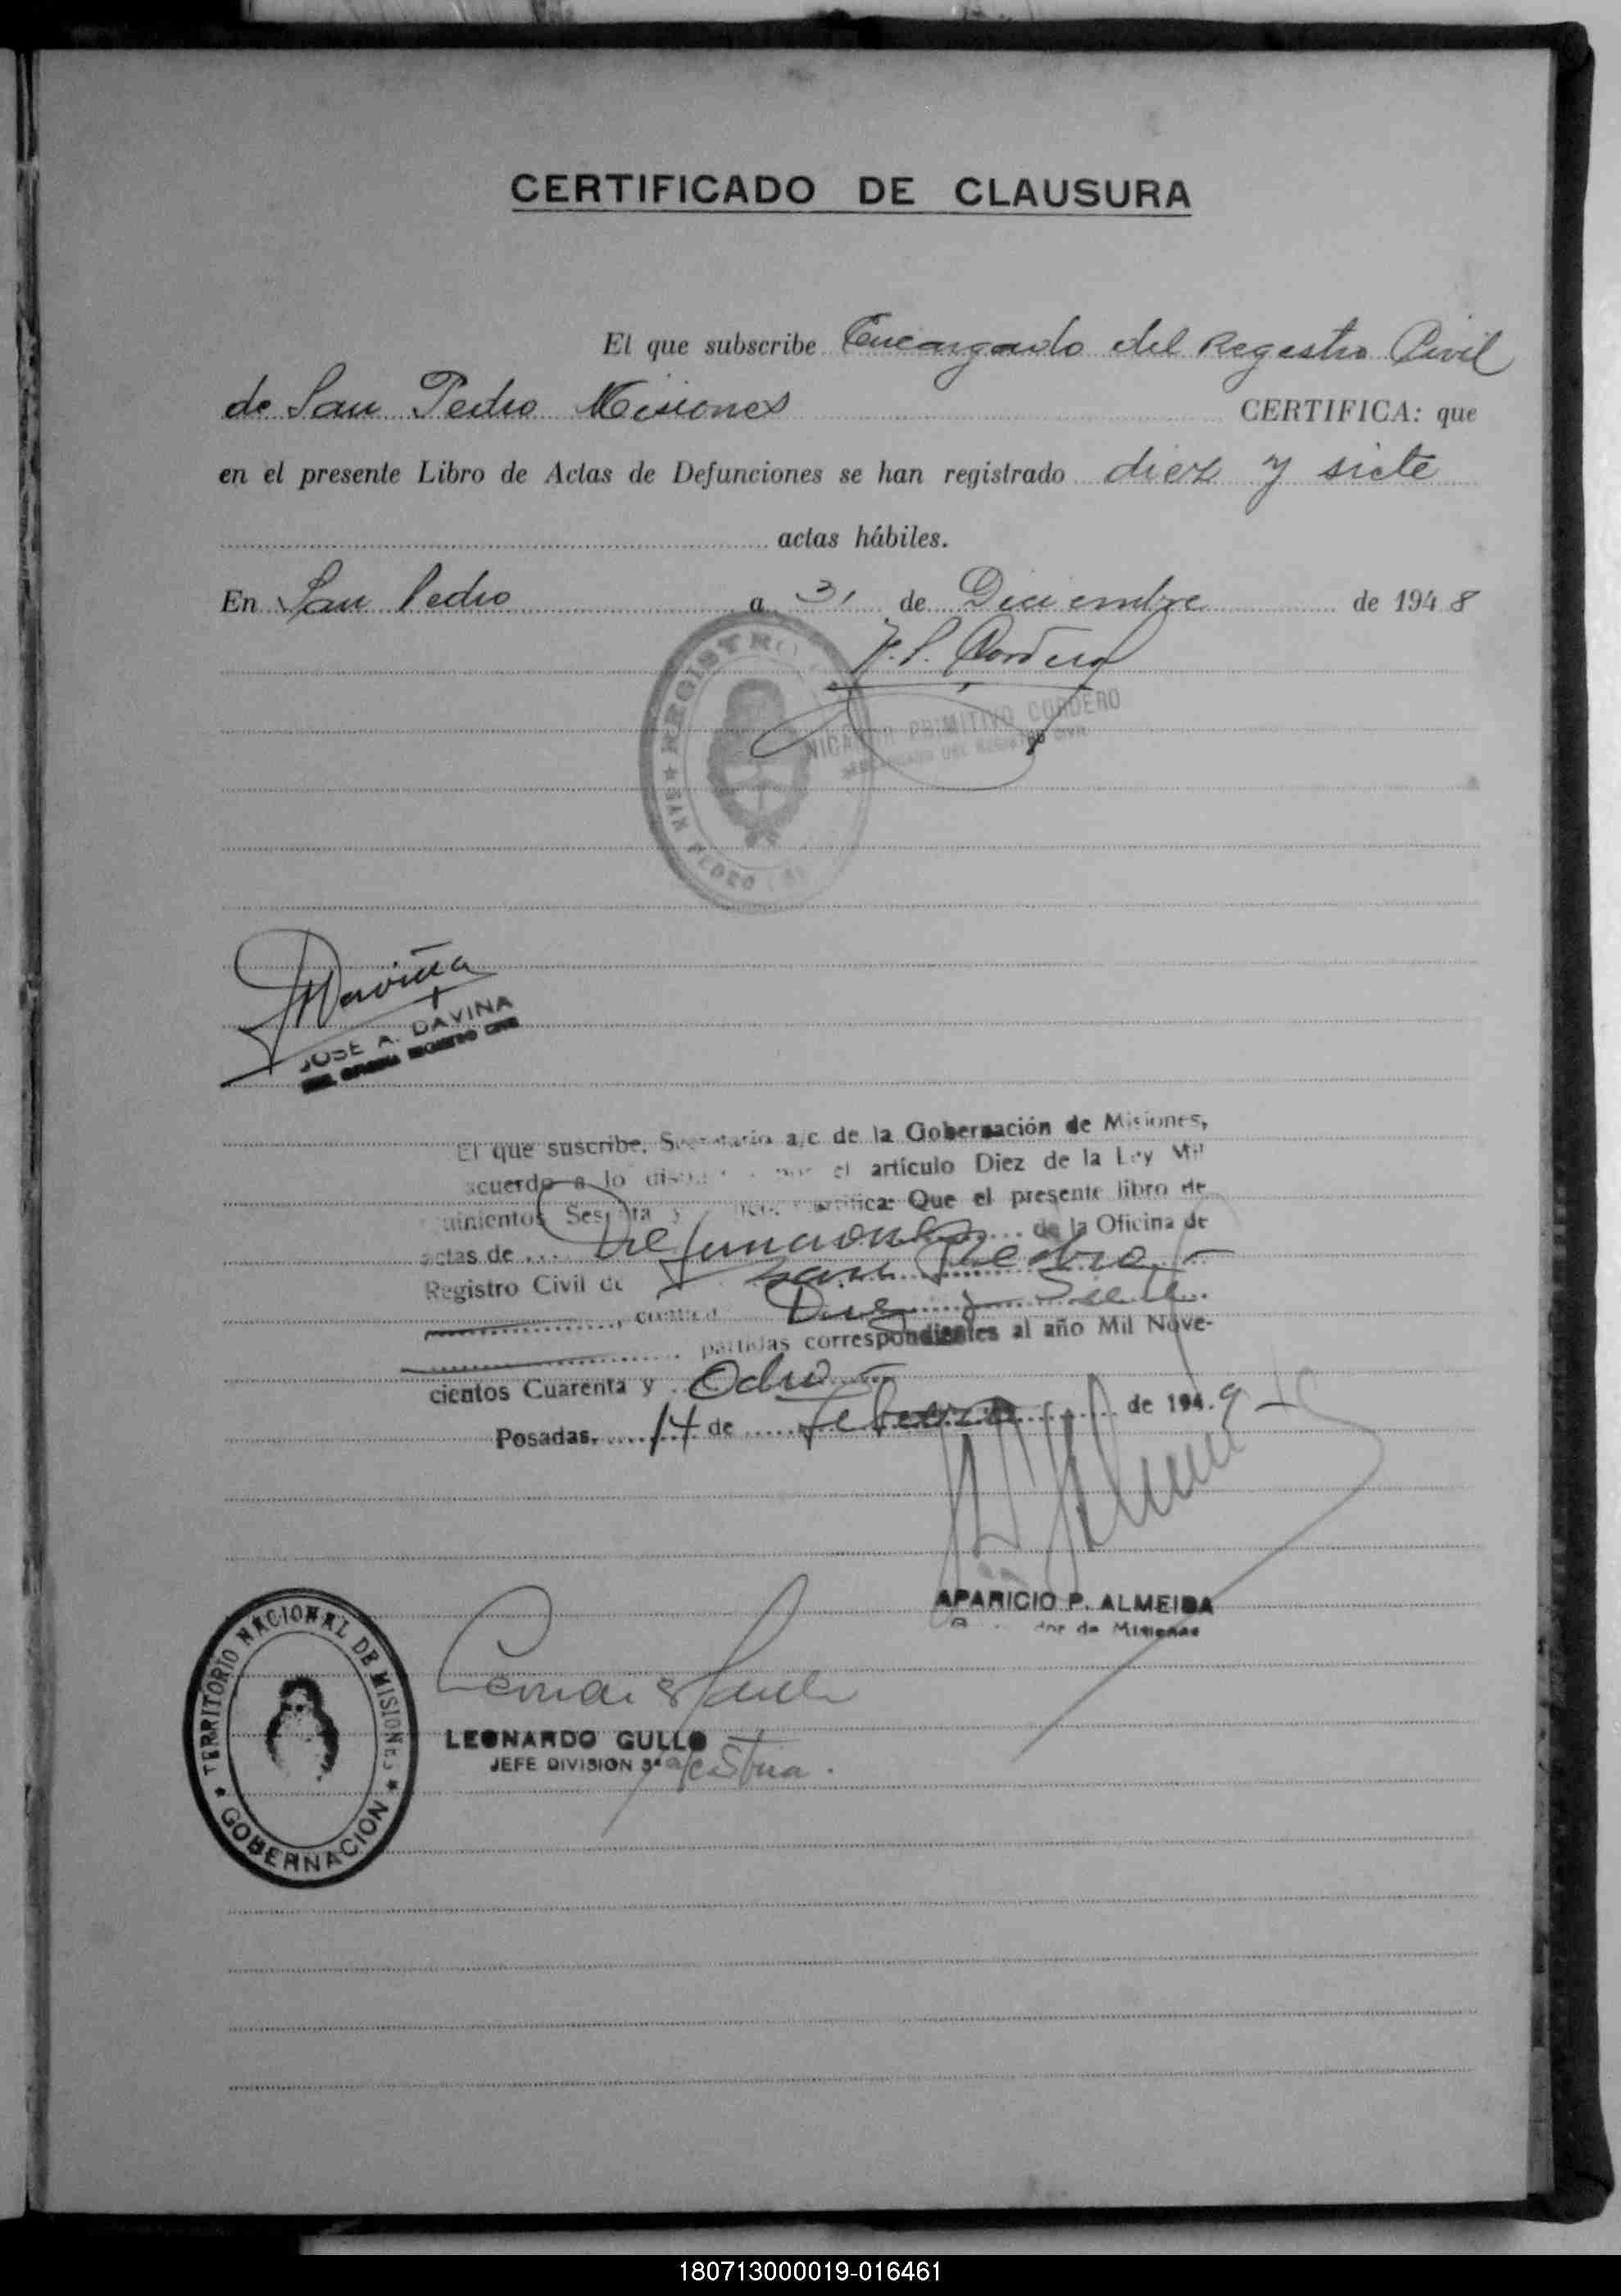 CERTIFICADO DE CLAUSURA
El que subscribe Encargado del Registro Civil
de San Pedro Misiones CERTIFICA: que
en el presente Libro de Actas de Defunciones se han registrado diez y siete
actas hábiles.
En San Pedro a 31 de Diciembre de 1948
REGISTRO
SAN PEDRO
PRIMITIVO CORDERO
DEL REGISTRO CIVIL
JOSE A. DAVIÑA
El que suscribe, Secretario a/c de la Gobernación de Misiones,
acuerdo a lo el artículo Diez de la Ley Mil
Que el presente libro de
actas de Defunciones de la Oficina de
Registro Civil de San Pedro
Diez y Siete
partidas correspondientes al año Mil Nove-
cientos Cuarenta y Ocho
Posadas, 14 de Febrero de 1949
APARICIO P. ALMEIDA
de Misiones
TERRITORIO NACIONAL DE MISIONES
GOBERNACION
LEONARDO GULLO
JEFE DIVISION 3ª
180713000019-016461